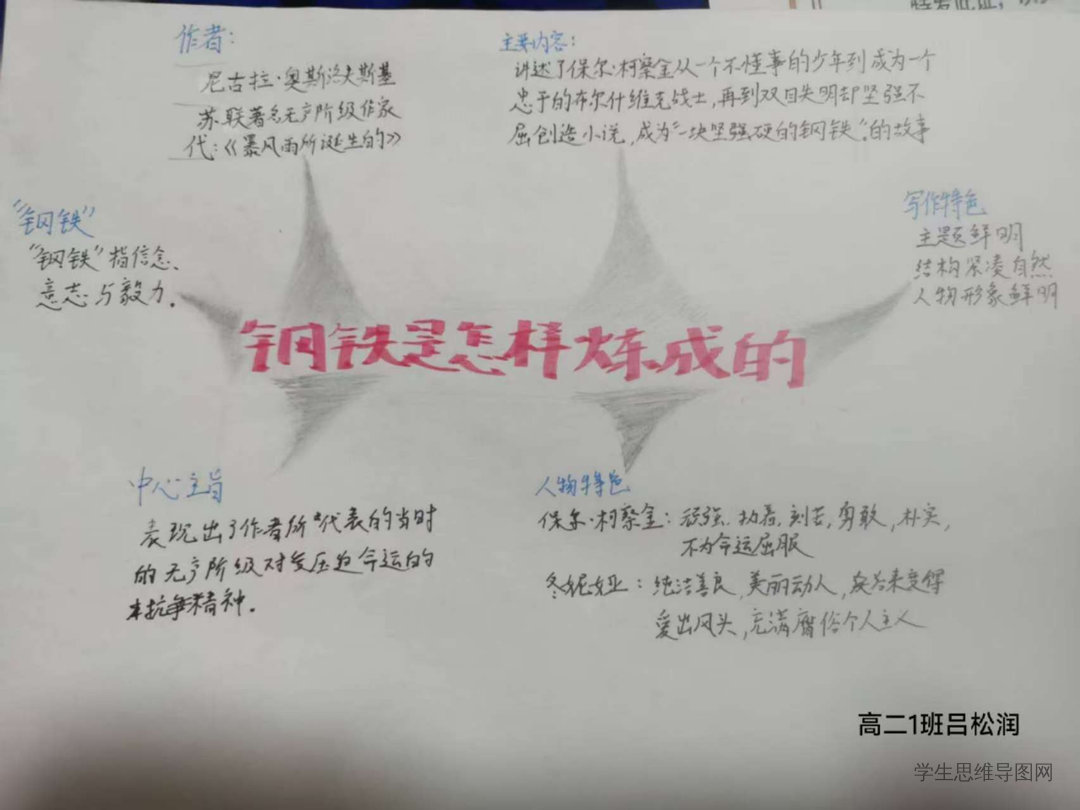 作者：
尼古拉·奥斯洛夫斯基
苏联著名无产阶级作家
代：《暴风雨所诞生的》
主要内容：
讲述了保尔·柯察金从一个不懂事的少年到成为一个
忠于的布尔什维克战士，再到双目失明却坚强不
屈创造小说，成为“一块坚强硬的钢铁”。的故事
“钢铁”
“钢铁”指信念、
意志与毅力。
写作特色
主题鲜明
结构紧凑自然
人物形象鲜明
钢铁是怎样炼成的
中心主旨
表现出了作者所代表的当时
的无产阶级对受压迫命运的
抗争精神。
人物特色
保尔·柯察金：顽强，执着，刻苦，勇敢，朴实，
不为命运屈服
冬妮娅：纯洁善良，美丽动人，后来变得
爱出风头，充满庸俗个人主人
高二1班吕松润
学生思维导图网